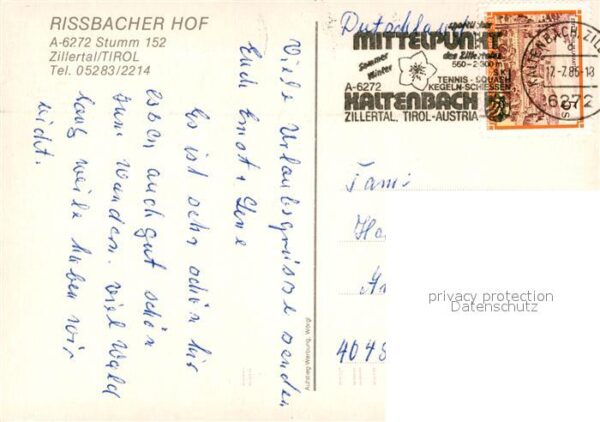 RISSBACHER HOF
A-6272 Stumm 152
Zillertal/TIROL
Tel. 05283/2214
Viele Urlaubsgrüsse senden
Euch Ernst + Lene
Es ist sehr schön hir
essen auch gut schön
zum wandern. viel Wald
lang weile haben wir
nicht.
Deutschland
sportlicher
MITTELPUNKT
des Zillertales
Sommer
Winter
560-2300 m
SKI
TENNIS-SQUASH
KEGELN-SCHIESSEN
A-6272
KALTENBACH
ZILLERTAL, TIROL-AUSTRIA
KALTENBACH, ZILL
12-7.85-18
6272
Fam
Ha
4048
privacy protection
Datenschutz